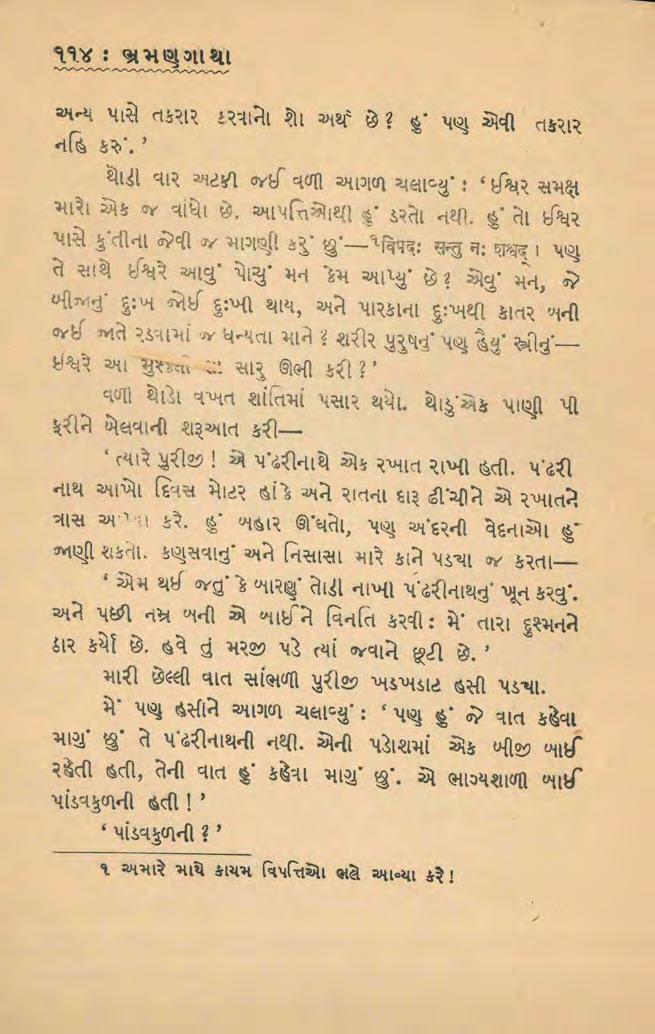 ૧૧૪ : ભ્રમણગાથા
અન્ય પાસે તકરાર કરવાનો શો અર્થ છે? હું પણ એવી તકરાર
નહિ કરું.’
થોડી વાર અટકી જઈ વળી આગળ ચલાવ્યું : ‘ઈશ્વર સમક્ષ
મારો એક જ વાંધો છે. આપત્તિઓથી હું ડરતો નથી. હું તો ઈશ્વર
પાસે કુંતીના જેવી જ માગણી કરું છું—૧विपदः सन्तु नः शश्वद् । પણ
તે સાથે ઈશ્વરે આવું પોચું મન કેમ આપ્યું છે? એવું મન, જે
બીજાનું દુઃખ જોઈ દુઃખી થાય, અને પારકાના દુઃખથી કાતર બની
જઈ જાતે રડવામાં જ ધન્યતા માને? શરીર પુરુષનું પણ હૈયું સ્ત્રીનું—
ઈશ્વરે આ સારુ ઊભી કરી?’
વળી થોડો વખત શાંતિમાં પસાર થયો. થોડુંએક પાણી પી
ફરીને બોલવાની શરૂઆત કરી—
‘ત્યારે પુરીજી! એ પંઢરીનાથે એક રખાત રાખી હતી. પંઢરી
નાથ આખો દિવસ મોટર હાંકે અને રાતના દારૂ ઢીંચીને એ રખાતને
ત્રાસ કરે. હું બહાર ઊંઘતો, પણ અંદરની વેદનાઓ હું
જાણી શકતો. કણસવાનું અને નિસાસા મારે કાને પડ્યા જ કરતા—
‘એમ થઈ જતું કે બારણું તોડી નાખી પંઢરીનાથનું ખૂન કરવું.
અને પછી નમ્ર બની એ બાઈને વિનતિ કરવી: મેં તારા દુશ્મનને
ઠાર કર્યો છે. હવે તું મરજી પડે ત્યાં જવાને છૂટી છે.’
મારી છેલ્લી વાત સાંભળી પુરીજી ખડખડાટ હસી પડ્યા.
મેં પણ હસીને આગળ ચલાવ્યું : ‘પણ હું જે વાત કહેવા
માગું છું તે પંઢરીનાથની નથી. એની પડોશમાં એક બીજી બાઈ
રહેતી હતી, તેની વાત હું કહેવા માગું છું. એ ભાગ્યશાળી બાઈ
પાંડવકુળની હતી!’
‘પાંડવકુળની?’
૧ અમારે માથે કાયમ વિપત્તિઓ ભલે આવ્યા કરે!